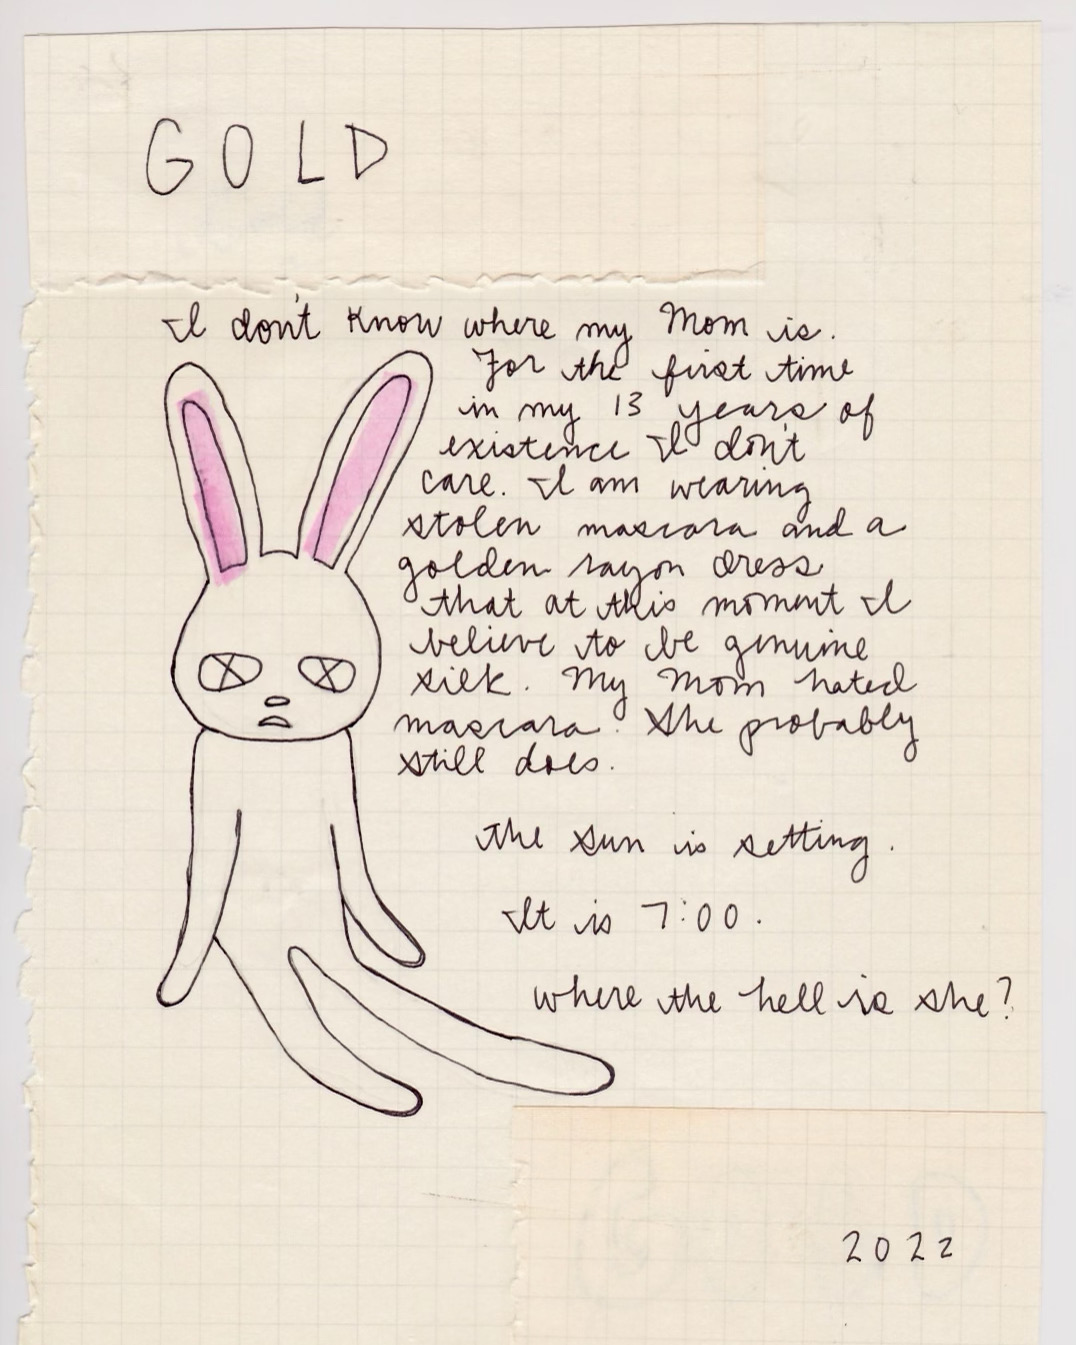 GOLD
I don't know where my Mom is.
For the first time
in my 13 years of
existence I don't
care. I am wearing
stolen mascara and a
golden rayon dress
that at this moment I
believe to be genuine
silk. My Mom hated
mascara. She probably
still does.
The sun is setting.
It is 7:00.
where the hell is she?
2022